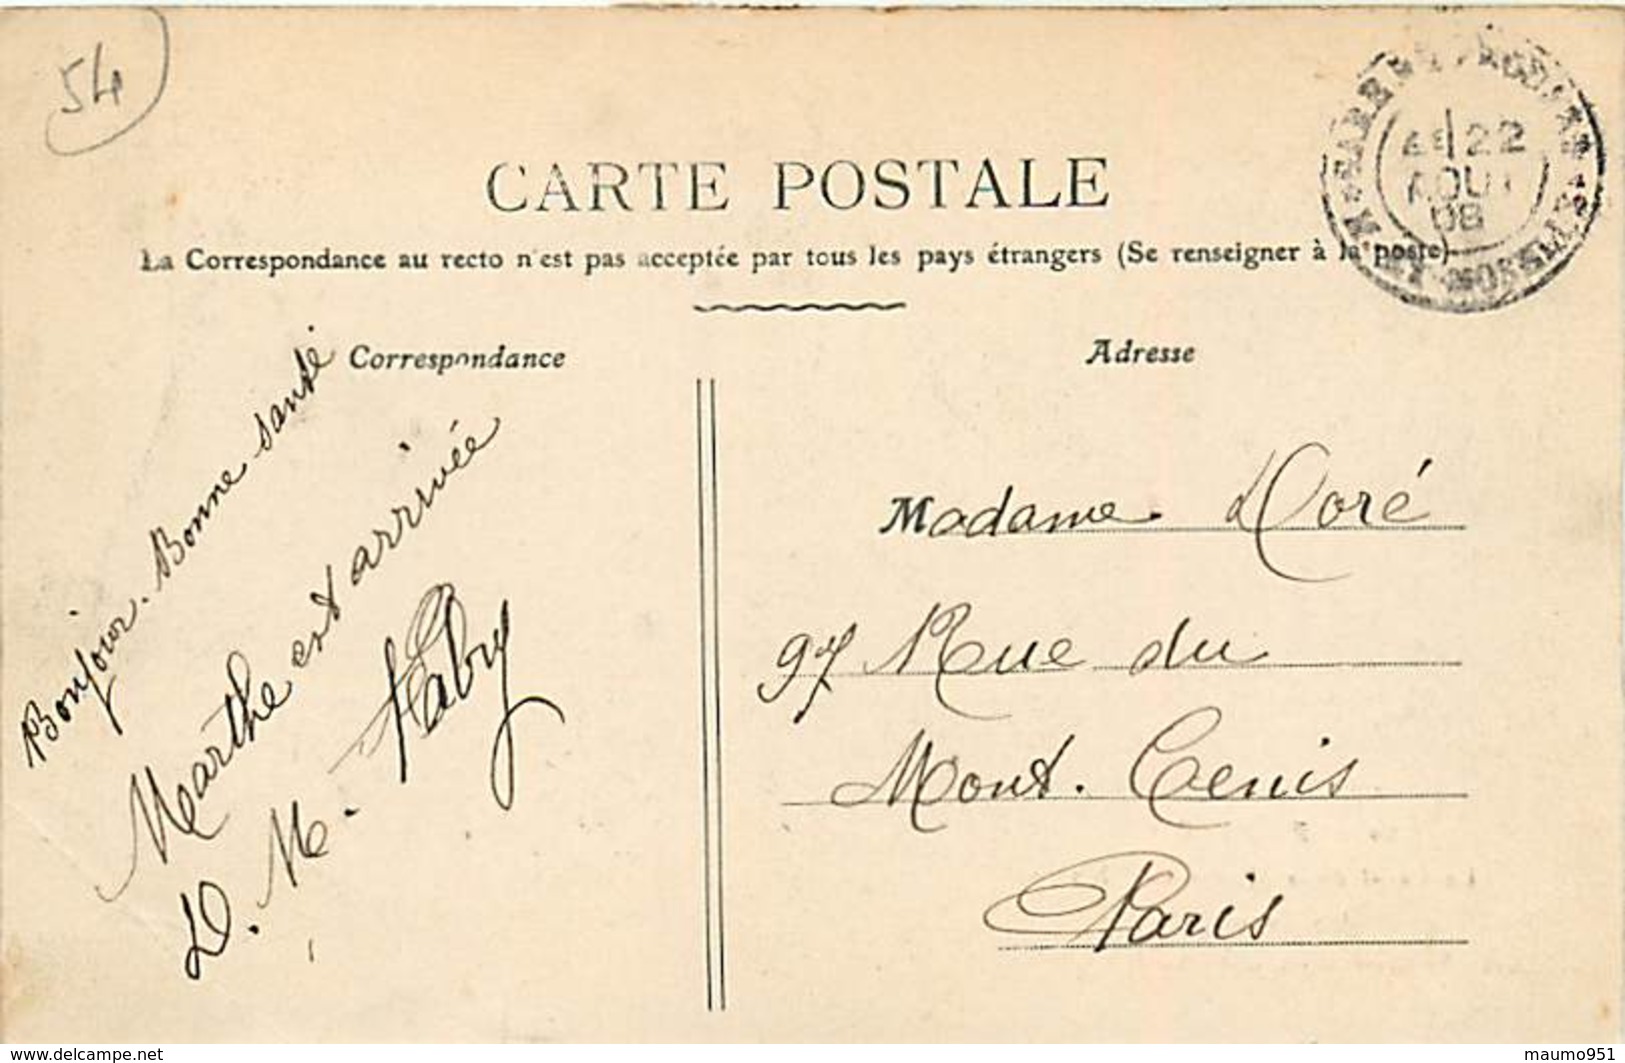 54
CARTE POSTALE
La Correspondance au recto n'est pas acceptée par tous les pays étrangers (Se renseigner à la poste)
22
AOUT
08
Correspondance
Bonjour. Bonne santé
Marthe est arrivée
D. M.
Adresse
Madame Doré
97 Rue du
Mont. Cenis
Paris
https://www.delcampe.net
maumo951